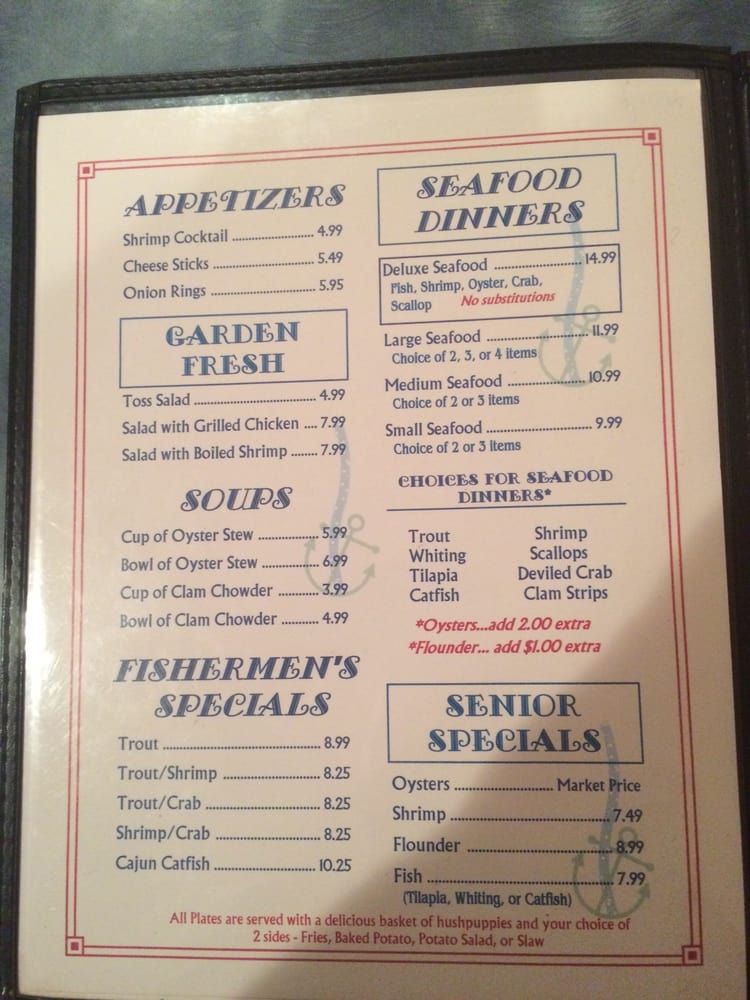 APPETIZERS
Shrimp Cocktail ................ 4.99
Cheese Sticks ................ 5.49
Onion Rings ................ 5.95
GARDEN
FRESH
Toss Salad ................ 4.99
Salad with Grilled Chicken .... 7.99
Salad with Boiled Shrimp ........ 7.99
SOUPS
Cup of Oyster Stew ................ 5.99
Bowl of Oyster Stew ................ 6.99
Cup of Clam Chowder ............ 3.99
Bowl of Clam Chowder ........... 4.99
FISHERMEN'S
SPECIALS
Trout ................ 8.99
Trout/Shrimp ................ 8.25
Trout/Crab ................ 8.25
Shrimp/Crab ................ 8.25
Cajun Catfish ................ 10.25
SEAFOOD
DINNERS
Deluxe Seafood ................ 14.99
Fish, Shrimp, Oyster, Crab,
Scallop No substitutions
Large Seafood ................ 11.99
Choice of 2, 3, or 4 items
Medium Seafood ................ 10.99
Choice of 2 or 3 items
Small Seafood ................ 9.99
Choice of 2 or 3 items
CHOICES FOR SEAFOOD
DINNERS*
Trout Shrimp
Whiting Scallops
Tilapia Deviled Crab
Catfish Clam Strips
*Oysters...add 2.00 extra
*Flounder... add $1.00 extra
SENIOR
SPECIALS
Oysters ................ Market Price
Shrimp ................ 7.49
Flounder ................ 8.99
Fish ................ 7.99
(Tilapia, Whiting, or Catfish)
All Plates are served with a delicious basket of hushpuppies and your choice of
2 sides - Fries, Baked Potato, Potato Salad, or Slaw